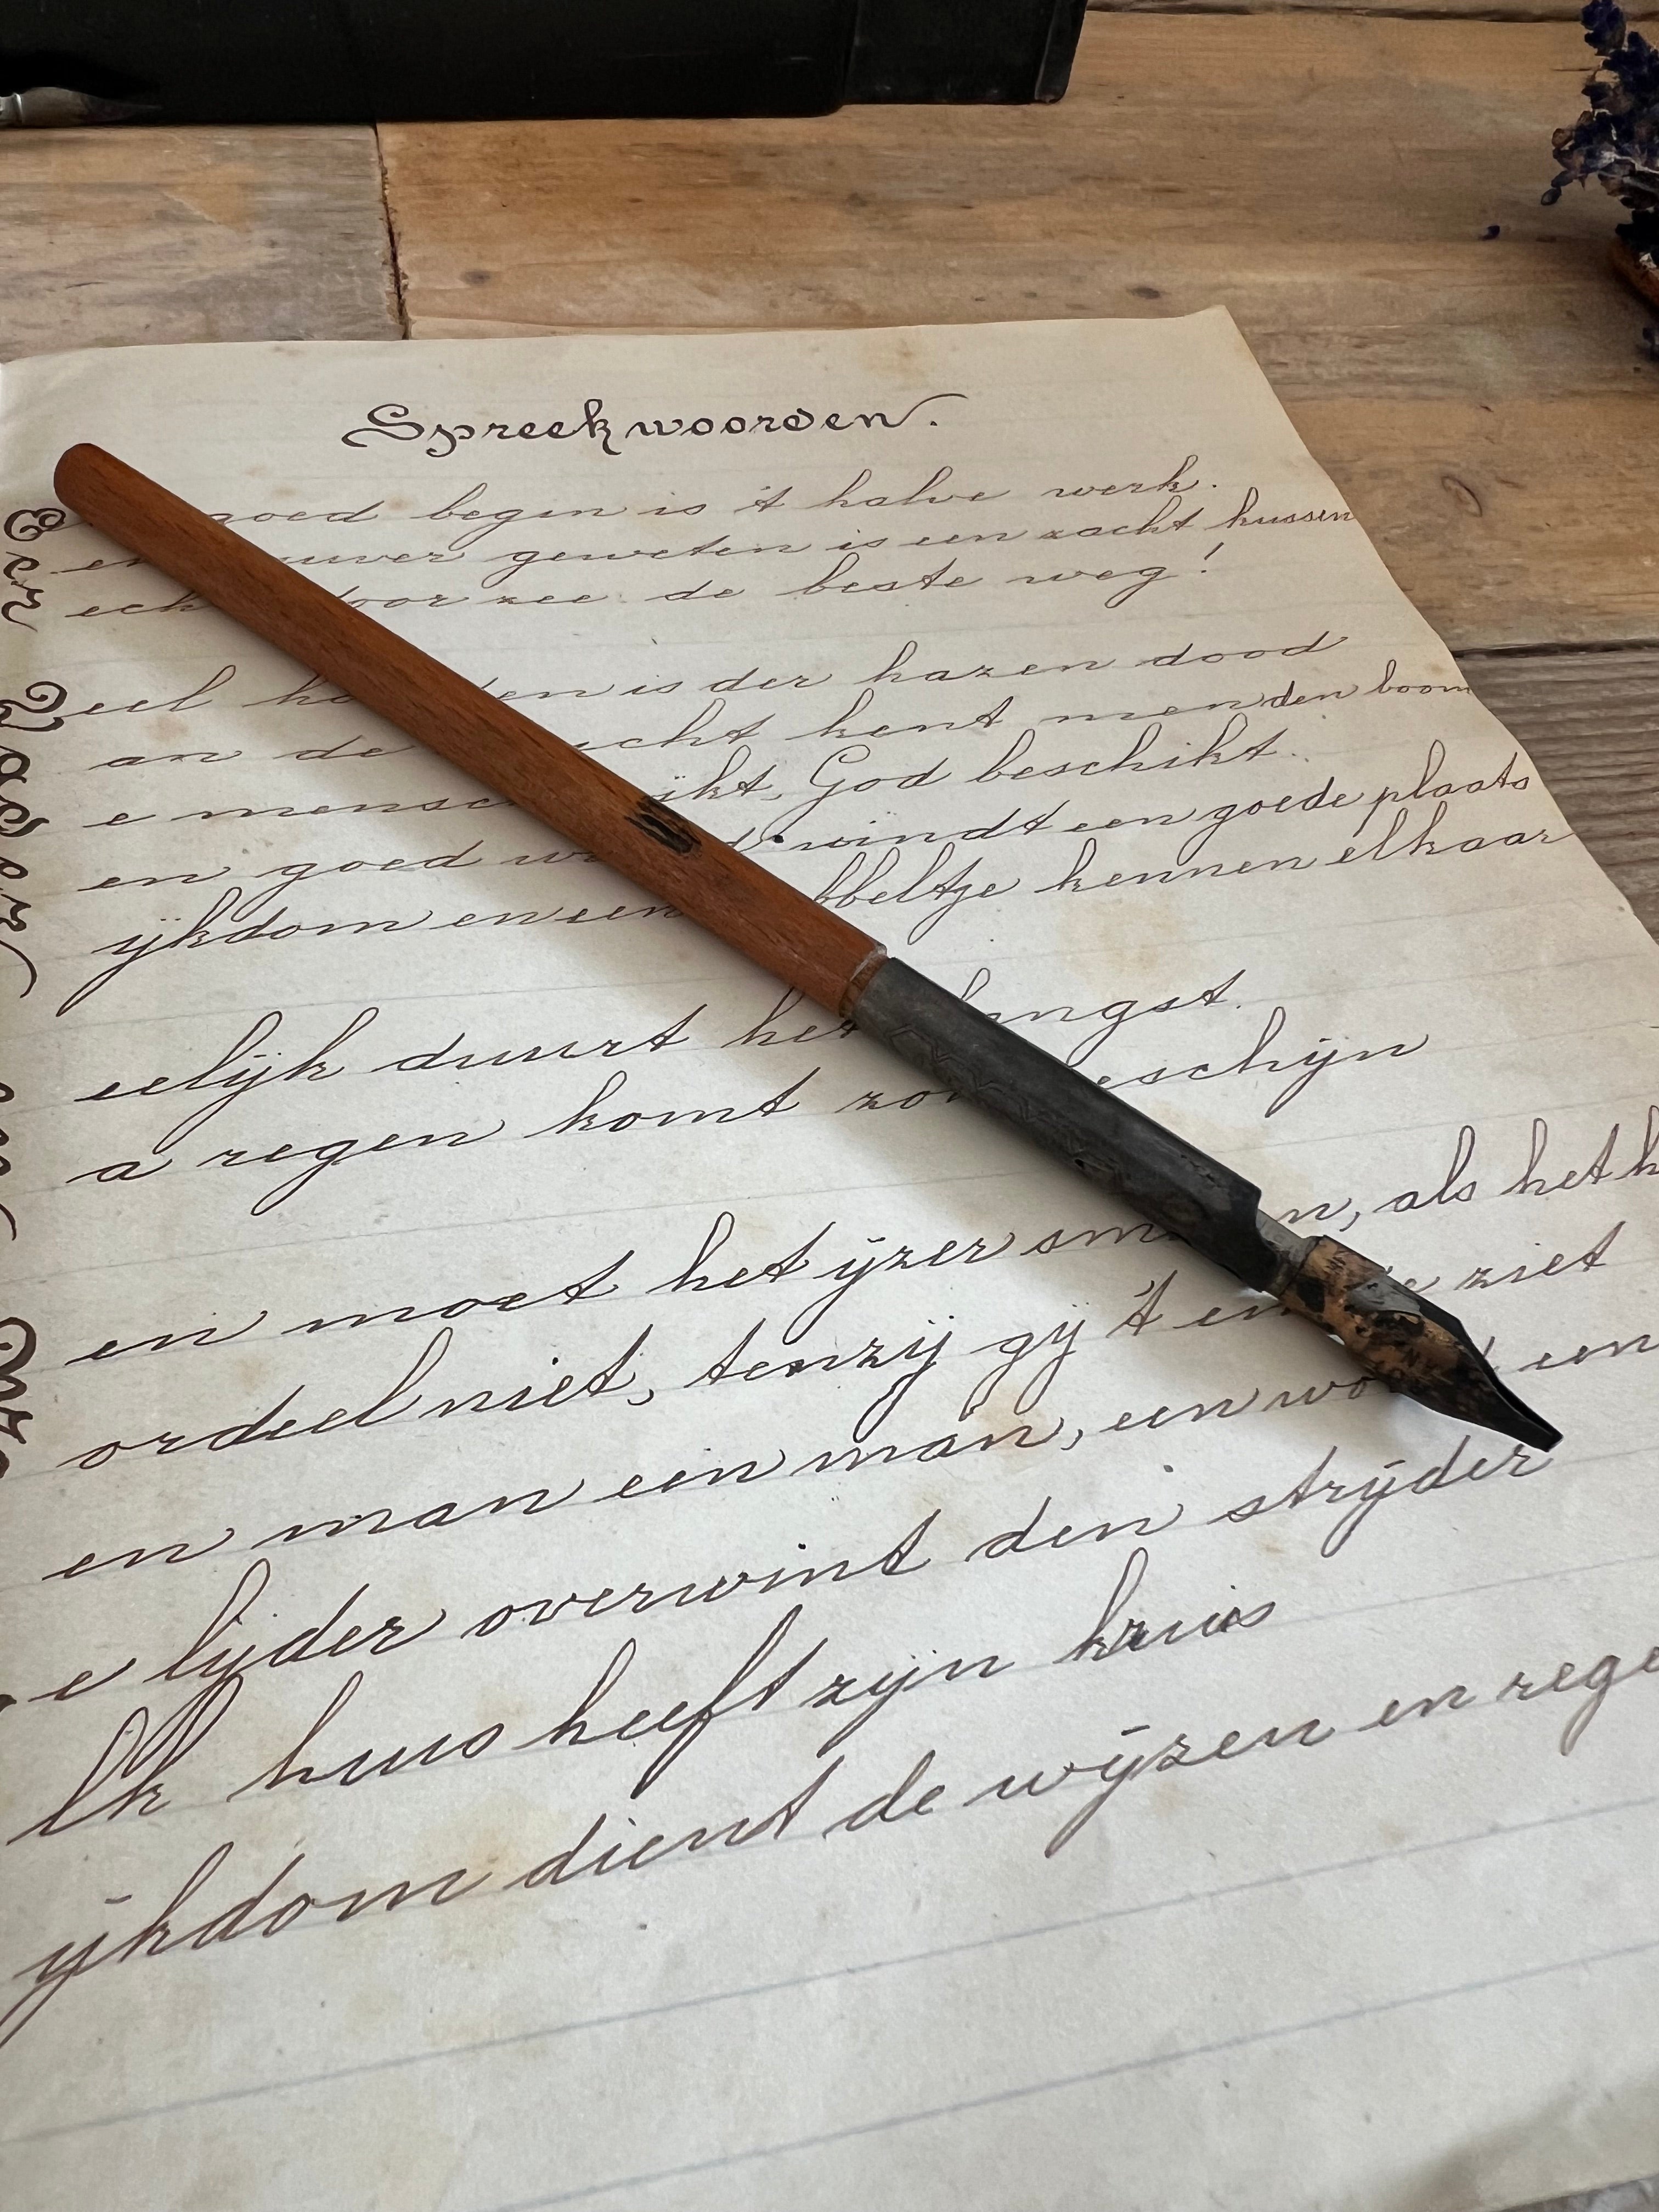 Spreekwoorden.
E goed begin is 't halve werk.
e en uwer geweten is een zacht kussen
r ech door zee de beste weg!
V eel ho en is der hazen dood
a an de ucht kent men den boom
d e mensc ikt, God beschikt.
e en goed w d vindt een goede plaats
r ijkdom en een bbeltje kennen elkaar
eelijk duurt het langst.
a regen komt zon eschijn
M en moet het ijzer sm n, als het h
ordeel niet, tenzij gij 't en e ziet
en man een man, een wo een
e lijder overwint den strijder
lk huis heeft zijn kruis
ijkdom dient de wijzen en rege